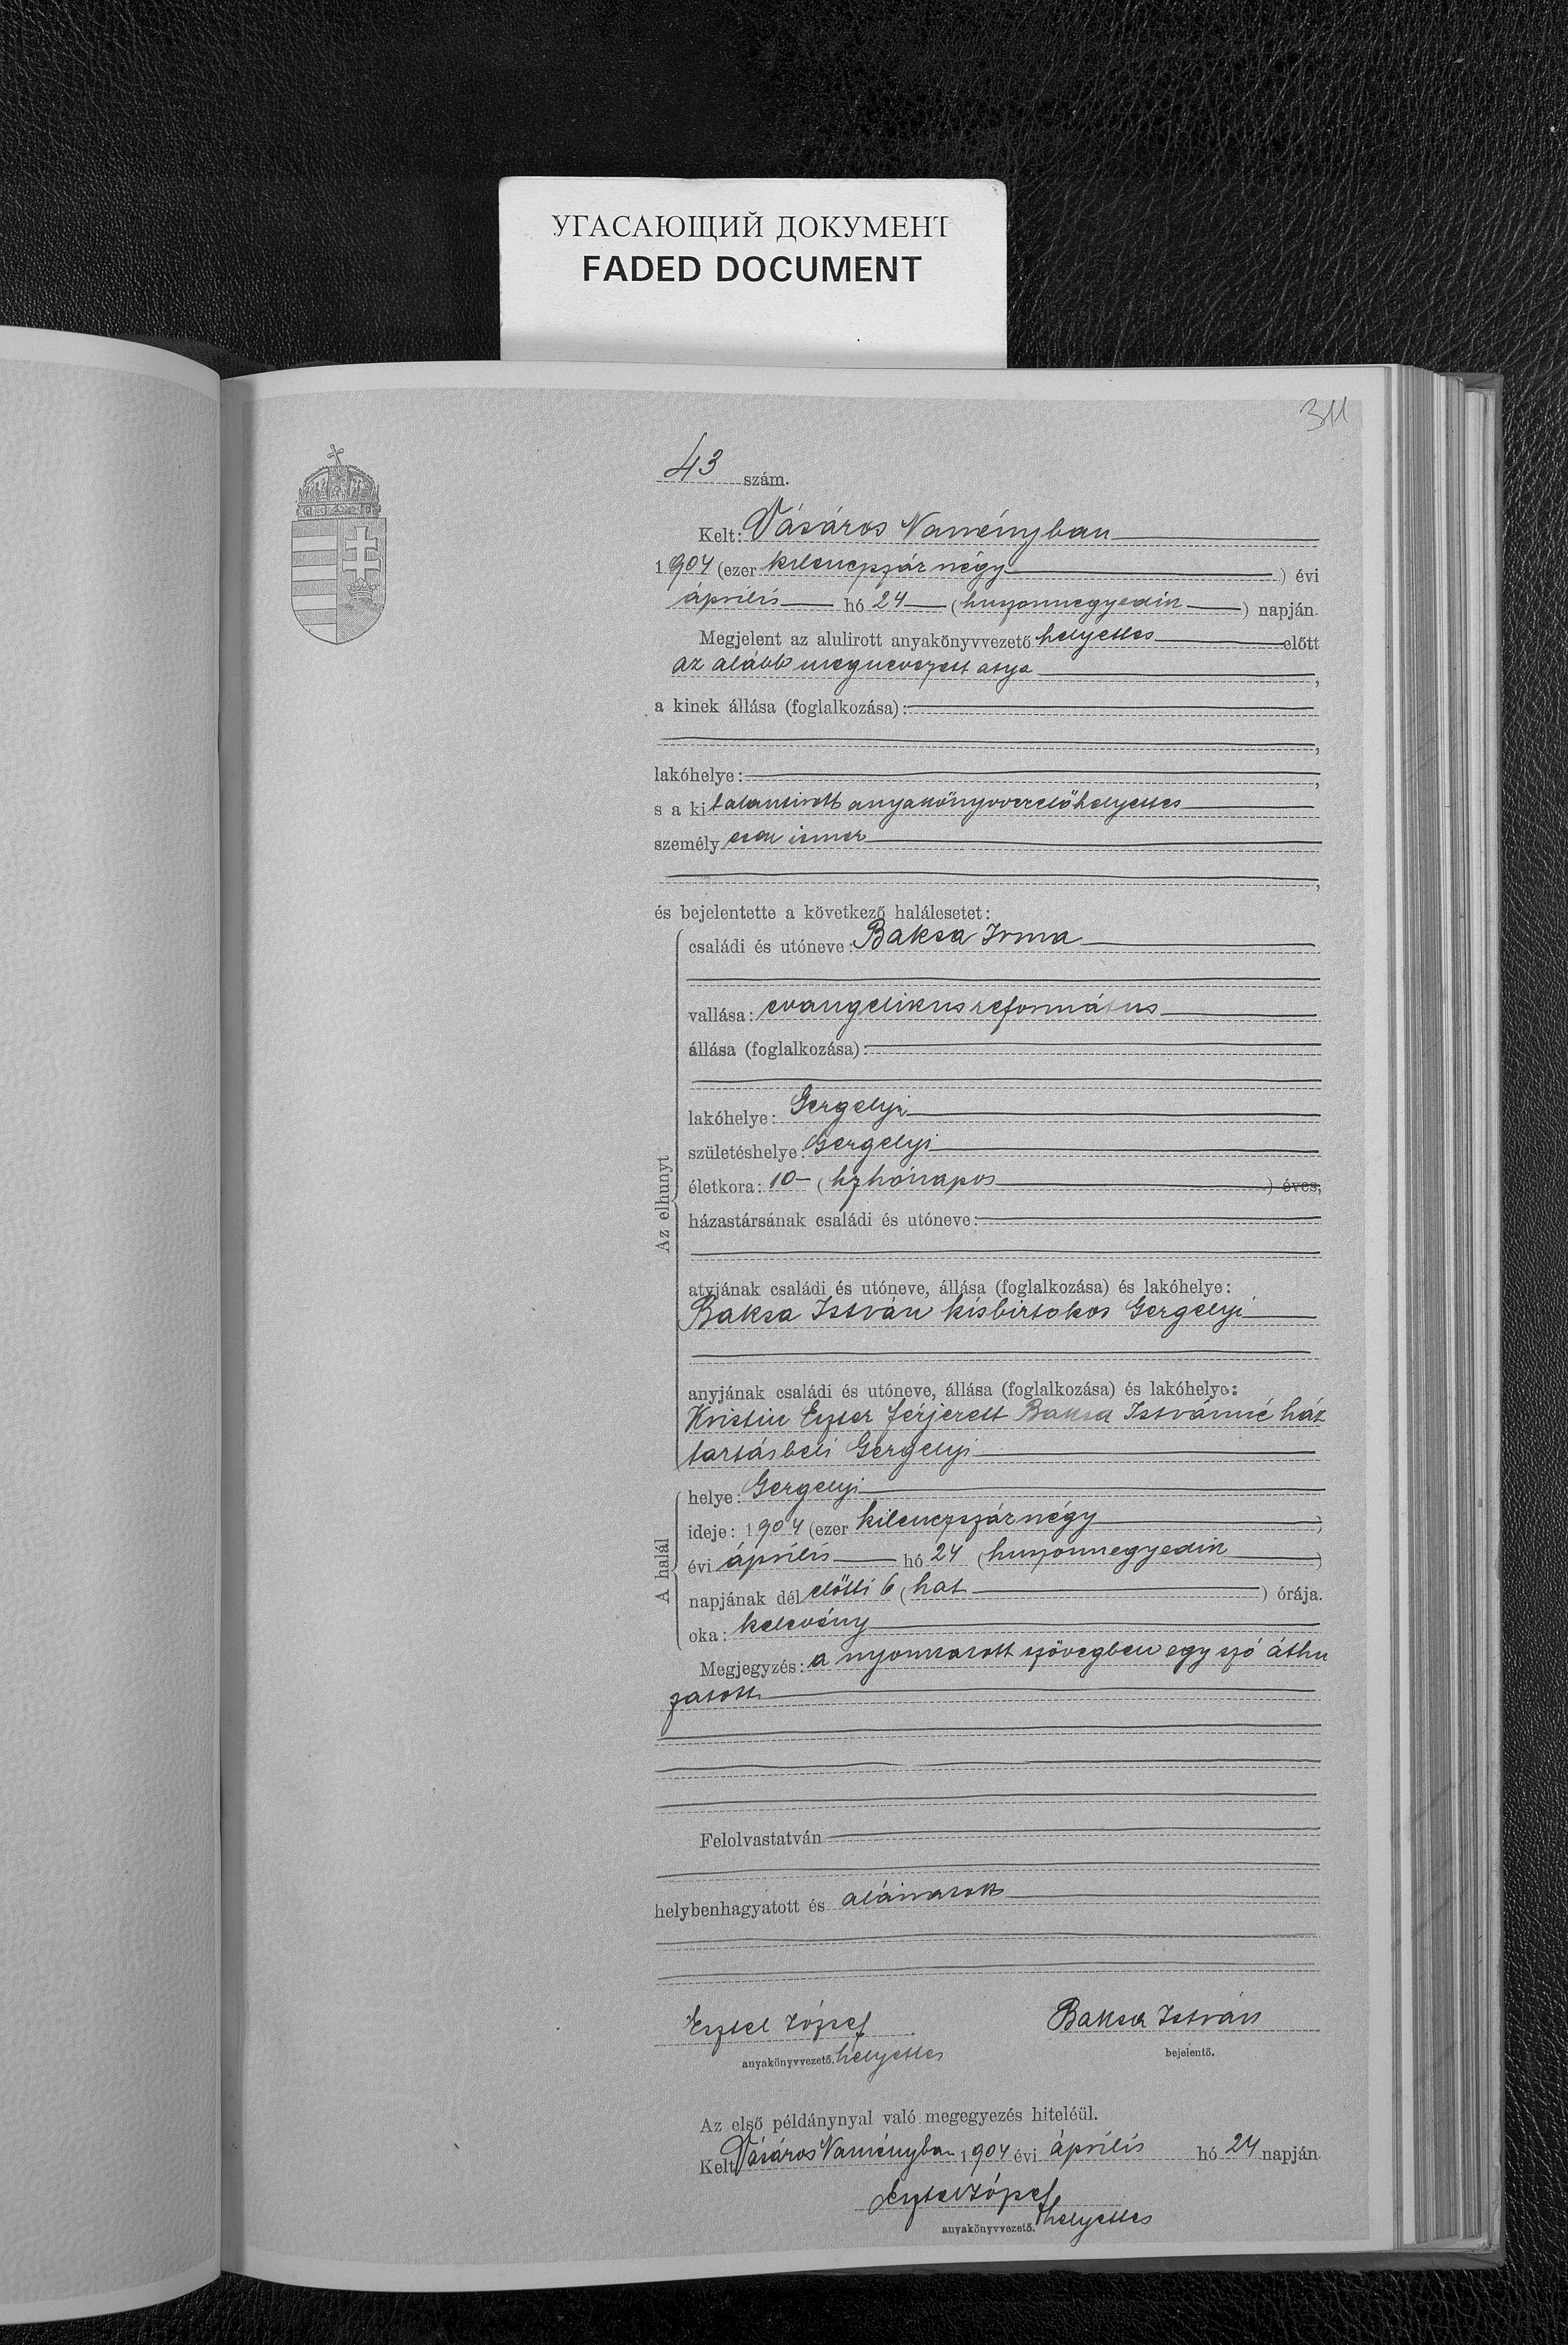 УГАСАЮЩИЙ ДОКУМЕНТ
FADED DOCUMENT
311
43 szám.
Kelt: Vásáros Naményban
1904 (ezer kilenczszáz négy) évi
április hó 24 (huszonnegyedik) napján.
Megjelent az alulirott anyakönyvvezető helyettes előtt
az alább megnevezett atya,
a kinek állása (foglalkozása):
lakóhelye:
s a ki alantirott anyakönyvvezetőhelyettes
személyesen ismer
és bejelentette a következő halálesetet:
Az elhunyt
családi és utóneve: Baksa Irma
vallása: evangelikus református
állása (foglalkozása):
lakóhelye: Gergelyi
születéshelye: Gergelyi
életkora: 10 (tíz hónapos) éves,
házastársának családi és utóneve:
atyjának családi és utóneve, állása (foglalkozása) és lakóhelye:
Baksa István kisbirtokos Gergelyi
anyjának családi és utóneve, állása (foglalkozása) és lakóhelye:
Eszter férjezett Baksa Istvánné ház
tartásbeli Gergelyi
A halál
helye: Gergelyi
ideje: 1904 (ezer kilenczszáznégy)
évi április hó 24 (huszonnegyedik)
napjának dél előtti 6 (hat) órája.
oka: kelevény
Megjegyzés: a nyomtatott szövegben egy szó áthu
zatott
Felolvastatván
helybenhagyatott és aláiratott
József Baksa István
anyakönyvvezető. helyettes bejelentő.
Az első példánynyal való megegyezés hiteléül.
Kelt Vásáros Naményban 1904 évi április hó 24 napján.
József
anyakönyvvezető. helyettes